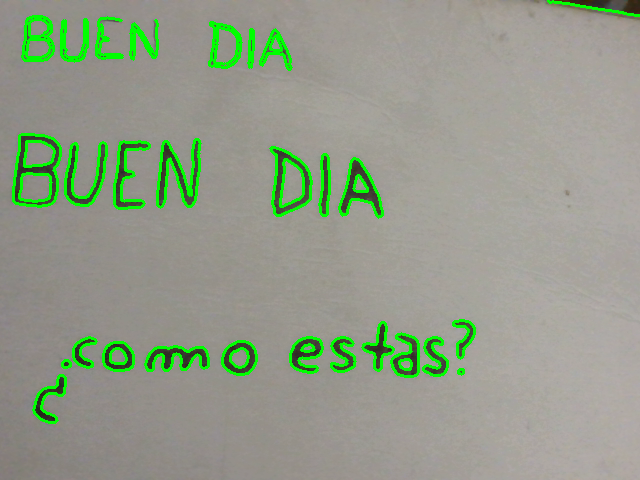 BUEN DIA
BUEN DIA
¿como estas?